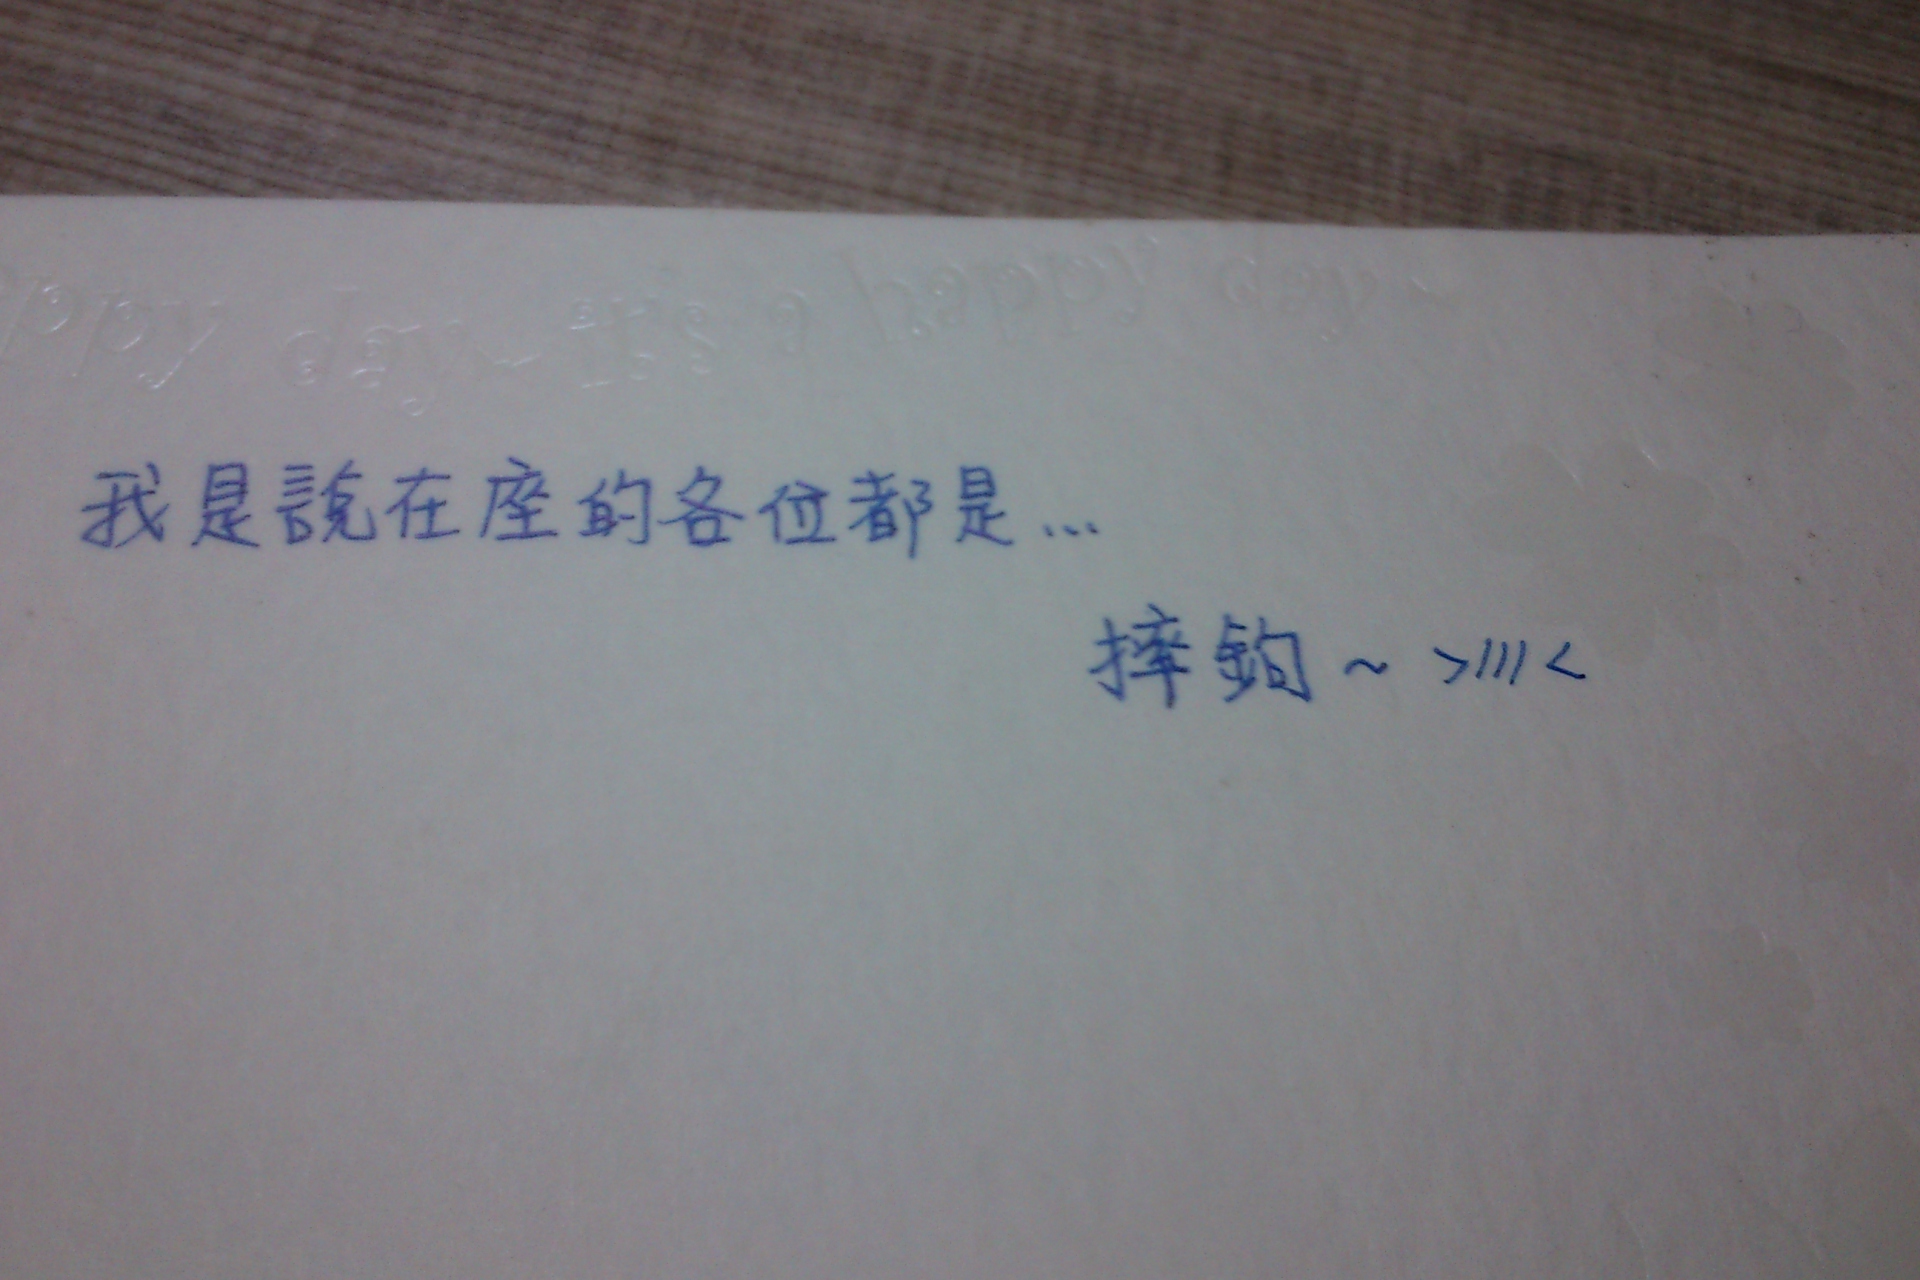 ppy day~It's a happy day~
我是說在座的各位都是...
摔鉤~ >///<